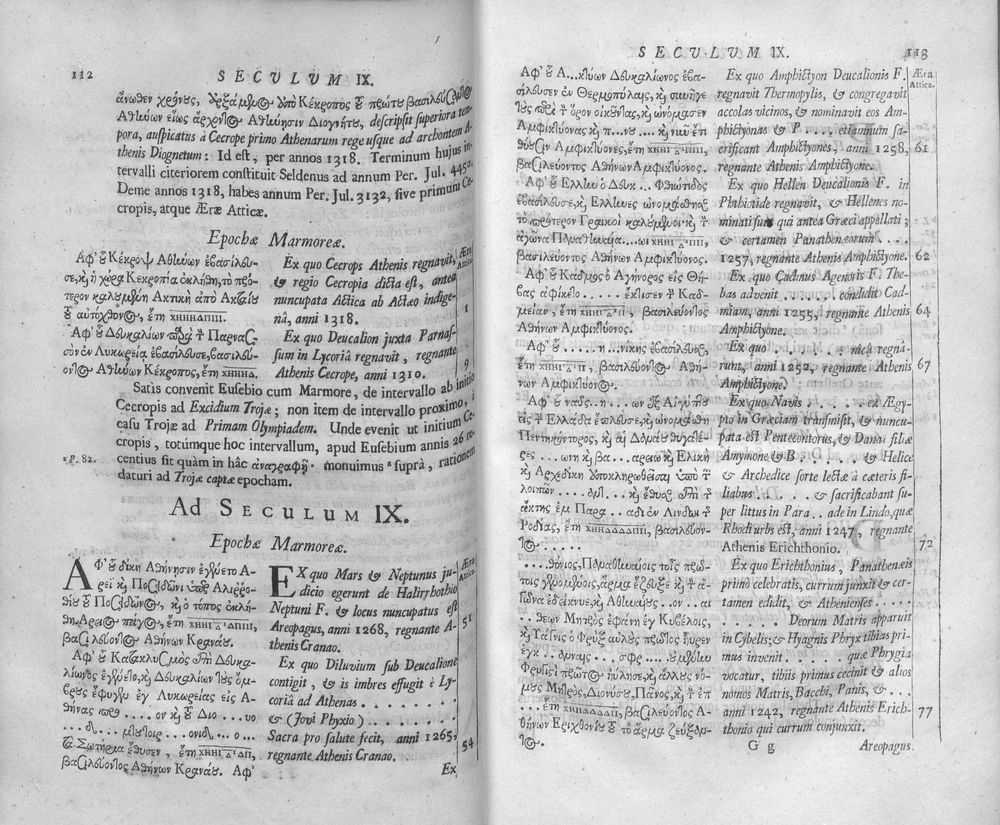 112
SECULUM IX.
ἄνωθεν χρόνους, ἀρξάμενος ἀπὸ Κέκροπος τοῦ πρώτου βασιλεύσαντος
Ἀθηνῶν εἵως ἄρχοντος Ἀθήνησιν Διογνήτου, descripsit superiora tem-
pora, auspicatus à Cecrope primo Athenarum rege usque ad archontem A-
thenis Diognetum: Id est, per annos 1318. Terminum hujus in-
tervalli citeriorem constituit Seldenus ad annum Per. Jul. 4450.
Deme annos 1318, habes annum Per. Jul. 3132, sive primum Ce-
cropis, atque Æræ Atticæ.
Epochæ Marmoreæ.
Æra
Attica
Ἀφ' οὗ Κέκροψ Ἀθηνῶν ἐβασίλευ-
σε, καὶ ἡ χώρα Κεκροπία ἐκλήθη, τὸ πρό-
τερον καλουμένη Ἀκτικὴ ἀπὸ Ἀκταίου
τοῦ αὐτόχθονος, ἔτη ΧΗΗΗΔΠΙΙΙ.
Ἀφ' οὗ Δευκαλίων παρὰ τὸν Παρνασ-
σὸν ἐν Λυκωρείᾳ ἐβασίλευσε, βασιλεύ-
οντος Ἀθηνῶν Κέκροπος, ἔτη ΧΗΗΗΔ.
Ex quo Cecrops Athenis regnavit,
& regio Cecropia dicta est, antea
nuncupata Actica ab Actæo indige-
nâ, anni 1318.
1
Ex quo Deucalion juxta Parnas-
sum in Lycoriâ regnavit, regnante
Athenis Cecrope, anni 1310.
9
Satis convenit Eusebio cum Marmore, de intervallo ab initio
Cecropis ad Excidium Trojæ; non item de intervallo proximo, à
casu Trojæ ad Primam Olympiadem. Unde evenit ut initium Ce-
cropis, totúmque hoc intervallum, apud Eusebium annis 26 re-
centius sit quàm in hâc ἀναγραφῇ· monuimus ª suprà, rationem
daturi ad Trojæ captæ epocham.
ª P. 82.
Ad SECULUM IX.
Epochæ Marmoreæ.
Æra
Attica
Ἀφ' οὗ δίκη Ἀθήνησιν ἐγένετο Ἄ-
ρει καὶ Ποσειδῶνι ὑπὲρ Ἁλιρρο-
θίου τοῦ Ποσειδῶνος, καὶ ὁ τόπος ἐκλή-
θη Ἄρειος πάγος, ἔτη ΧΗΗΠΔΠΙΙΙ,
βασιλεύοντος Ἀθηνῶν Κραναοῦ.
Ἀφ' οὗ Κατακλυσμὸς ἐπὶ Δευκα-
λίωνος ἐγένετο, καὶ Δευκαλίων τοὺς ὄμ-
βρους ἔφυγεν ἐγ Λυκωρείας εἰς Ἀ-
θήνας πρὸς .... ον καὶ τοῦ Διο ... υο
... Σωτήρια ἔθυσεν, ἔτη ΧΗΗΠΔΠ,
βασιλεύοντος Ἀθηνῶν Κραναοῦ. Ἀφ'
EX quo Mars & Neptunus ju-
dicio egerunt de Halirrhothio
Neptuni F. & locus nuncupatus est
Areopagus, anni 1268, regnante A-
thenis Cranao.
51
Ex quo Diluvium sub Deucalione
contigit, & is imbres effugit è Ly-
coriâ ad Athenas . . . . . . . .
& (Jovi Phyxio) . . . . . . . .
Sacra pro salute fecit, anni 1265,
regnante Athenis Cranao.
54
Ex
SECULUM IX.
113
Æra
Attica.
Ἀφ' οὗ Ἀ...κτύων Δευκαλίωνος ἐβα-
σίλευσεν ἐν Θερμοπύλαις, καὶ συνῆγε
τοὺς περὶ τὸν ὅρον οἰκοῦντας, καὶ ὠνόμασεν
Ἀμφικτύονας καὶ Π...ν... καὶ νῦν ἔτι
θύουσιν Ἀμφικτύονες, ἔτη ΧΗΗΠΠΙΙΙ,
βασιλεύοντος Ἀθηνῶν Ἀμφικτύονος.
Ἀφ' οὗ Ἕλλην ὁ Δευκ... Φθιώτιδος
ἐβασίλευσε, καὶ Ἕλληνες ὠνομάσθησαν
τὸ πρότερον Γραικοὶ καλούμενοι, καὶ τὸν
ἀγῶνα Παναθηναια...ωι ΧΗΗΠΠΙΙ,
βασιλεύοντος Ἀθηνῶν Ἀμφικτύονος.
Ἀφ' οὗ Κάδμος ὁ Ἀγήνορος εἰς Θή-
βας ἀφίκετο ...... ἔκτισεν τὴν Καδ-
μείαν, ἔτη ΧΗΗΠΠ, βασιλεύοντος
Ἀθηνῶν Ἀμφικτύονος.
Ἀφ' οὗ ...... η...νίκης ἐβασίλευσεν,
ἔτη ΧΗΗΠΙΙ, βασιλεύοντος Ἀθη-
νῶν Ἀμφικτύονος.
Ἀφ' οὗ ναῦς .. η ..... ων ἐξ Αἰγύπτου
εἰς τὴν Ἑλλάδα ἔπλευσε, καὶ ὠνομάσθη
Πεντηκόντορος, καὶ αἱ Δαναοῦ θυγατέ-
ρες ... ωνη καὶ βα... αρειω καὶ Ἑλίκη
καὶ Ἀρχεδίκη ἀποκληρωθεῖσαι ὑπὸ τῶν
λοιπῶν ........ καὶ ἔθυσαν ἐπὶ τῆς
ἀκτῆς ἐμ Παρα ... αδι ἐν Λίνδῳ τῆς
Ῥοδίας, ἔτη ΧΗΗΔΔΔΔΠΙΙ, βασιλεύον-
τος ......
...θόνιος, Παναθηναίοις τοῖς πρώ-
τοις γενομένοις, ἅρμα ἔζευξε, καὶ τὸν ἀ-
γῶνα ἐδείκνυε, καὶ Ἀθηναίους ..ον...αι
..θεῶν Μητρὸς ἐφάνη ἐγ Κυβέλοις,
καὶ Ὕαγνις ὁ Φρὺξ αὐλοὺς πρῶτος ηὗρεν
Φρυγιστὶ πρῶτος ηὔλησε, καὶ ἄλλους νό-
μους Μητρὸς, Διονύσου, Πανὸς, καὶ τὸν ἐπ
.... ἔτη ΧΗΗΔΔΔΔΙΙ, βασιλεύοντος Ἀ-
θηνῶν Ἐριχθονίου τοῦ τὸ ἅρμα ζεύξαν-
τος.
Ex quo Amphictyon Deucalionis F.
regnavit Thermopylis, & congregavit
accolas vicinos, & nominavit eos Am-
phictyonas & P.... etiamnum sa-
crificant Amphictyones, anni 1258,
regnante Athenis Amphictyone.
61
Ex quo Hellen Deucalionis F. in
Phthiotide regnavit, & Hellenes no-
minati sunt qui antea Græci appellati;
& certamen Panatheneorum . . . . .
1257, regnante Athenis Amphictyone.
62
Ex quo Cadmus Agenoris F. The-
bas advenit . . . . . . condidit Cad-
miam, anni 1255, regnante Athenis
Amphictyone.
64
Ex quo . . . . . . . nicæ regna-
runt, anni 1252, regnante Athenis
Amphictyone.
67
Ex quo Navis . . . . . . . ex Ægy-
pto in Græciam transmisit, & nuncu-
pata est Pentecontorus, & Danai filiæ
Amymone & B . . . . . . . & Helice
& Archedice sorte lectæ à cæteris fi-
liabus . . . . . . & sacrificabant su-
per littus in Para . . ade in Lindo, quæ
Rhodi urbs est, anni 1247, regnante
Athenis Erichthonio.
72
Ex quo Erichthonius, Panathenæis
primò celebratis, currum junxit & cer-
tamen edidit, & Athenienses . . . .
. . . . . . . Deorum Matris apparuit
in Cybelis; & Hyagnis Phryx tibias pri-
mus invenit . . . . . . quæ Phrygia
vocatur, tibiis primus cecinit & alios
nomos Matris, Bacchi, Panis, & . . . .
anni 1242, regnante Athenis Erich-
thonio qui currum conjunxit.
77
G g
Areopagus